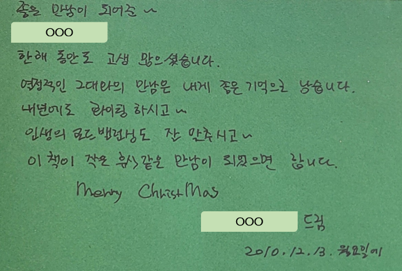 좋은 만남이 되어준~
OOO
한해 동안도 고생 많으셨습니다.
열정적인 그대와의 만남은 내게 좋은 기억으로 남습니다.
내년에도 화이팅 하시고~
인생의 포드밸런싱도 잘 맞추시고~
이 책이 작은 휴식같은 만남이 되었으면 합니다.
Merry ChristMas
OOO 드림
2010.12.13. 월요일에